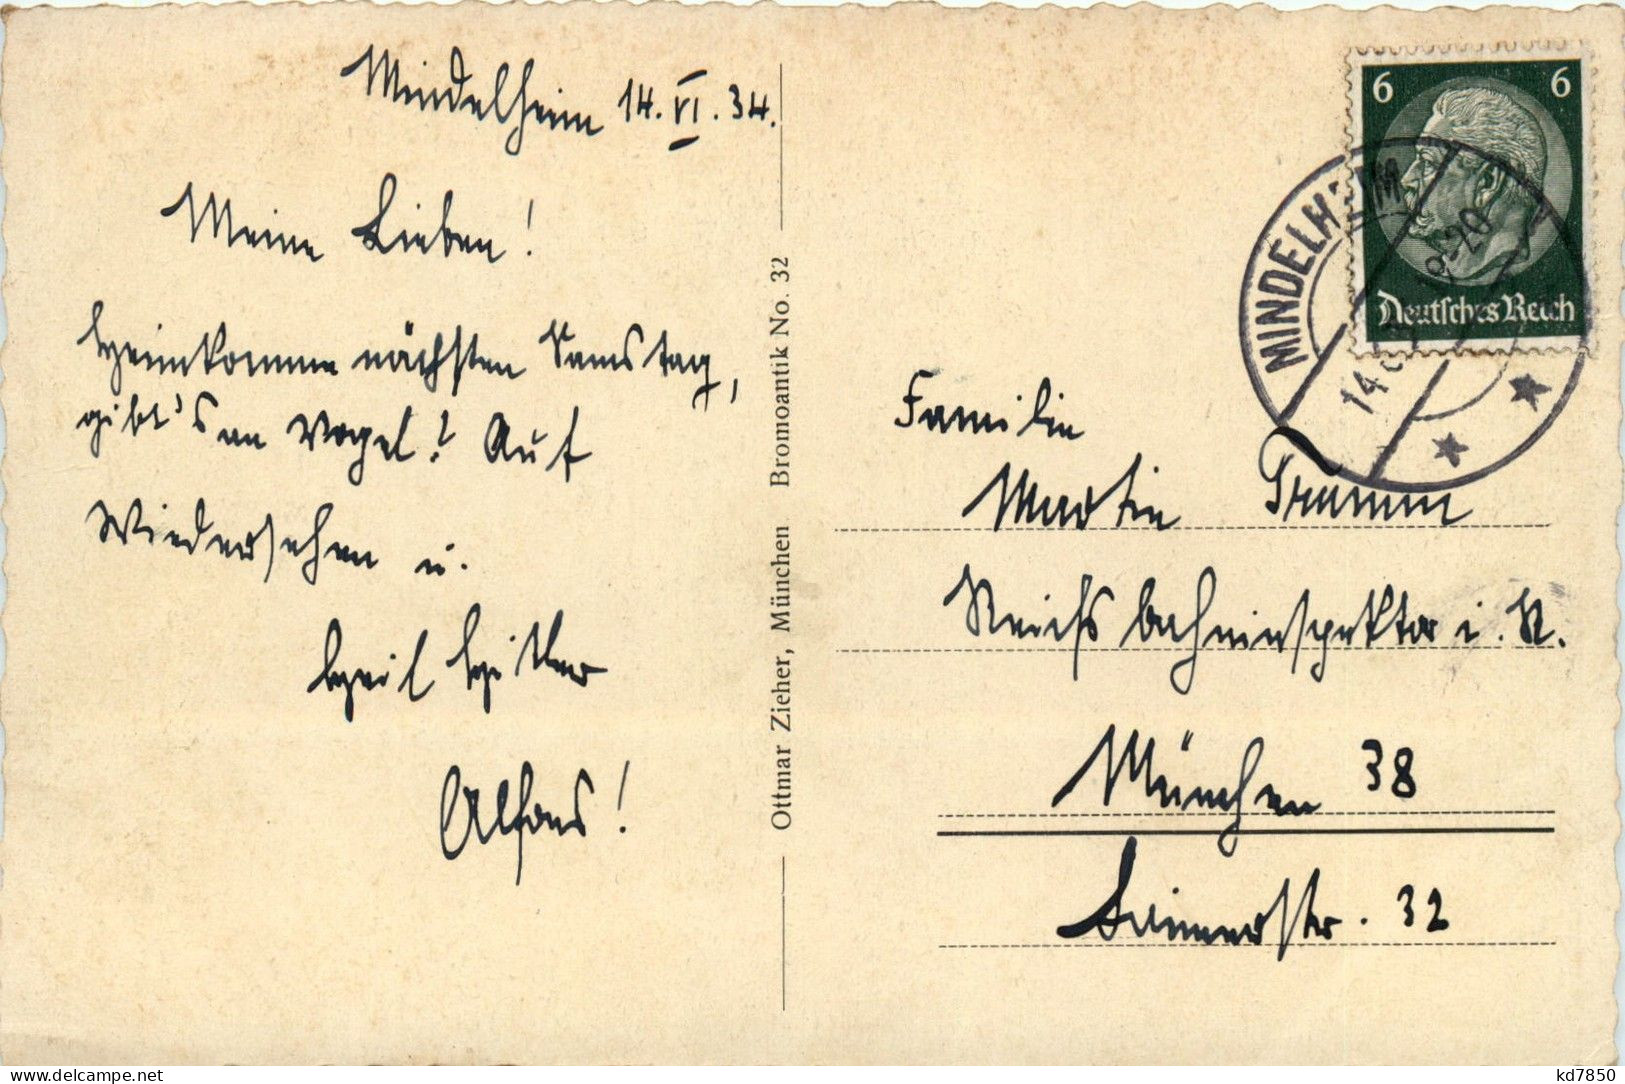 Mindelheim 14. VI. 34.
Meine Lieben!
Heimkomme nächsten Samstag,
gibt's an Vogel? Auf
Wiedersehen u.
Heil Hitler
Alfons!
Ottmar Zieher, München Bromoantik No. 32
6 6
Deutsches Reich
MINDELHEIM
14
9-20
Familie
Martin Trumm
Reichsbahninspektor i. R.
München 38
str. 32
kd7850